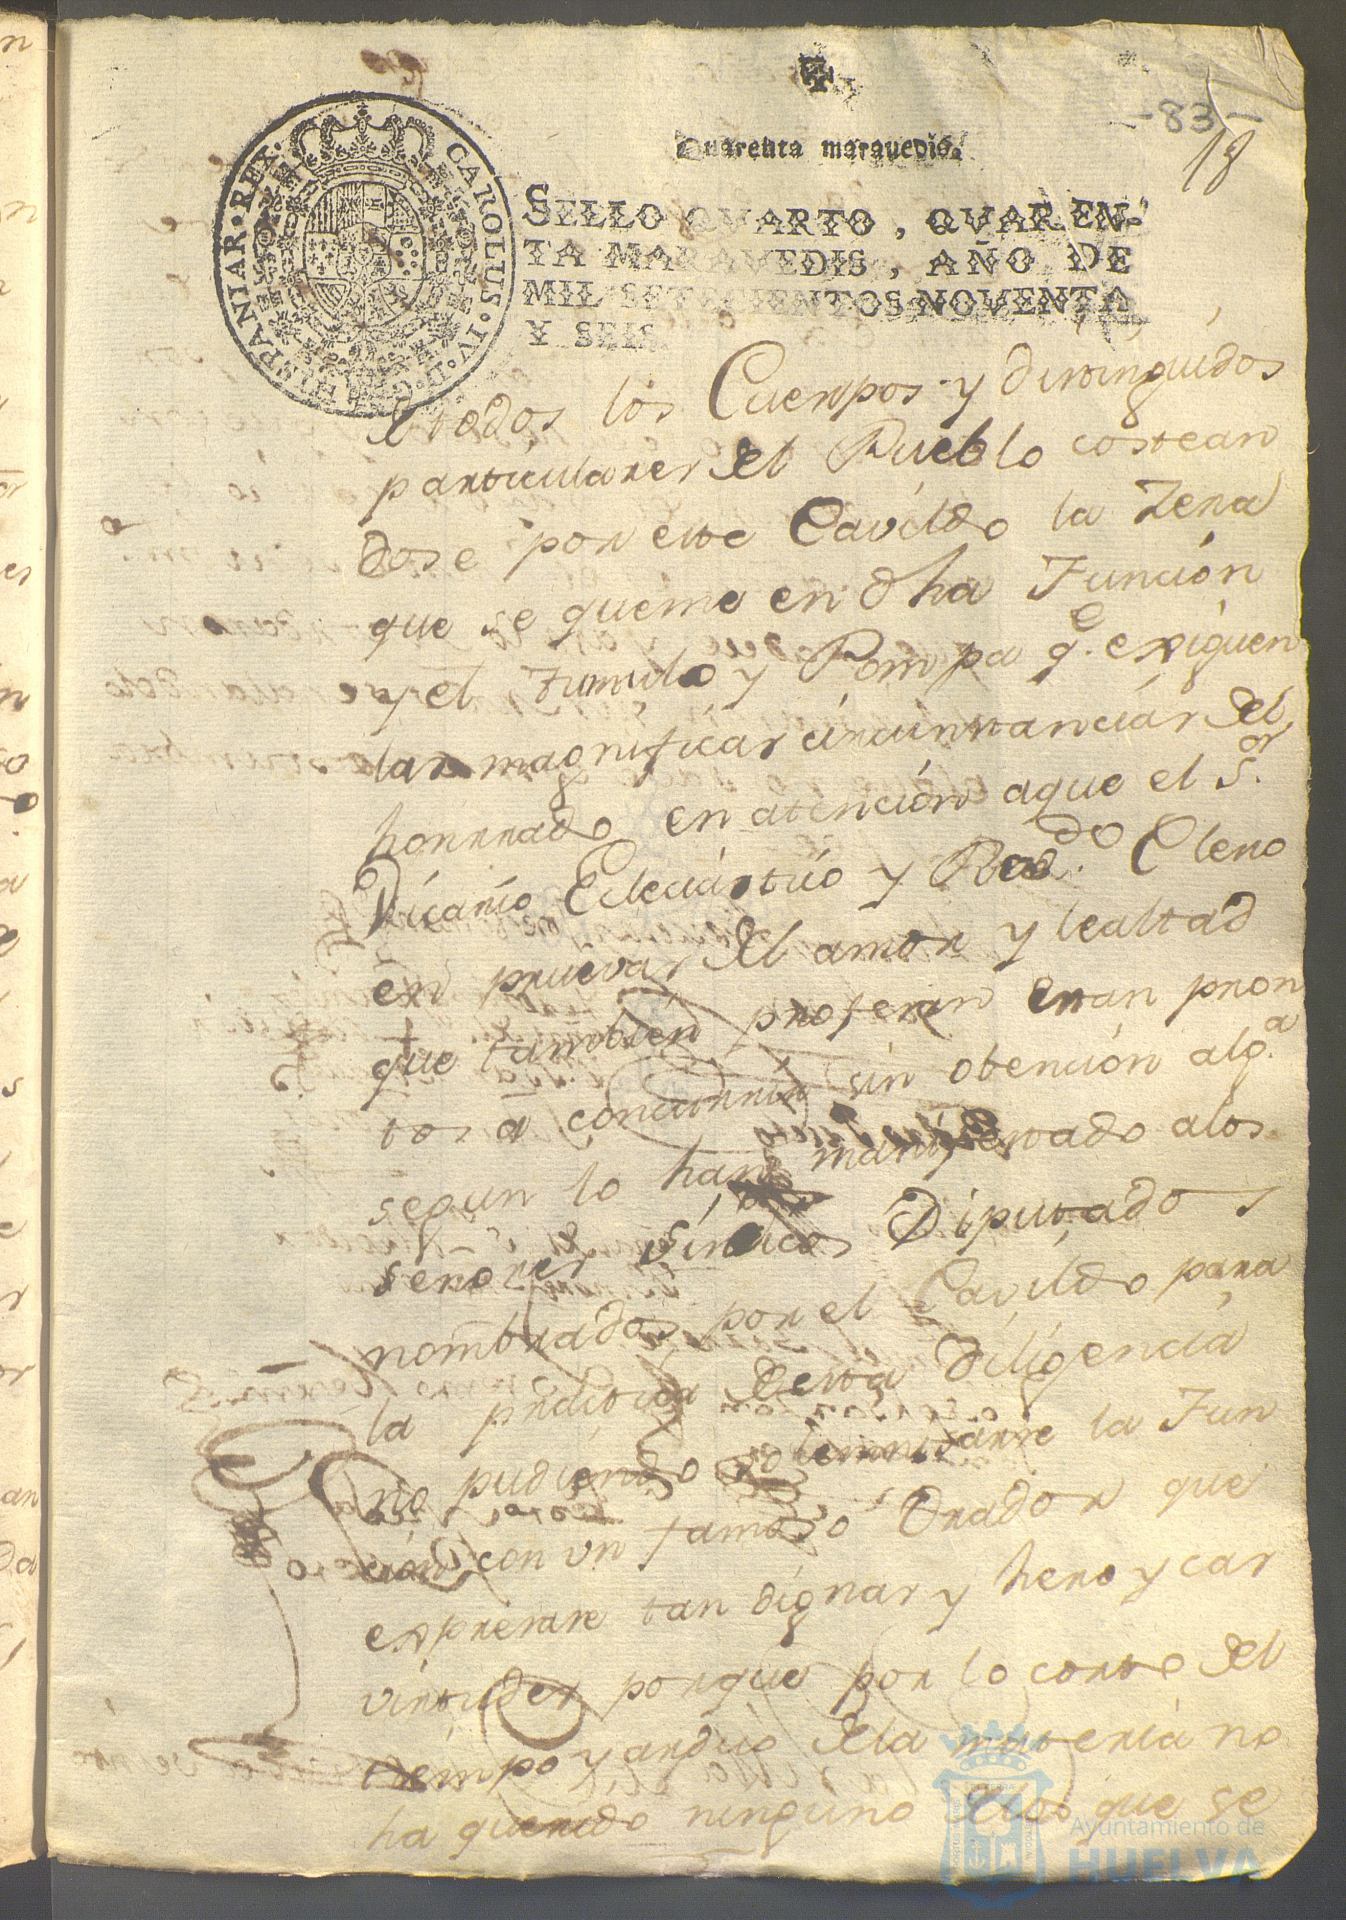 -83-
18
Quarenta maravedis.
SELLO QVARTO, QVAREN-
TA MARAVEDIS, AÑO DE
MIL SETECIENTOS NOVENTA
Y SEIS.
CAROLUS·IV·D·G·HISPANIAR·REX·
de todos los Cuerpos y distinguidos
particulares del Pueblo costean
dose por este Cavildo la Zera
que se queme en dha Función
y el tumulo y Pompa q.e exiguen
las magnificas circunstancias del
honrrado en atención aque el S.or
Vicario Eclesiastico y Rvdo. Clero
en pruevas del amor y lealtad
que tambien profesan eran pron
tos a concurrir sin obención alg.a
segun lo han manifestado alos
señores Sindicos Diputados
nombrados por el Cavildo para
la practica desta diligencia
no pudiendo solemnizarse la Fun
ción con un famoso Orador que
exprerare tan dignas y heroycas
virtudes porque por lo corto del
tiempo y arduo dela materia no
ha querido ninguno delos que se
Ayuntamiento de
HUELVA